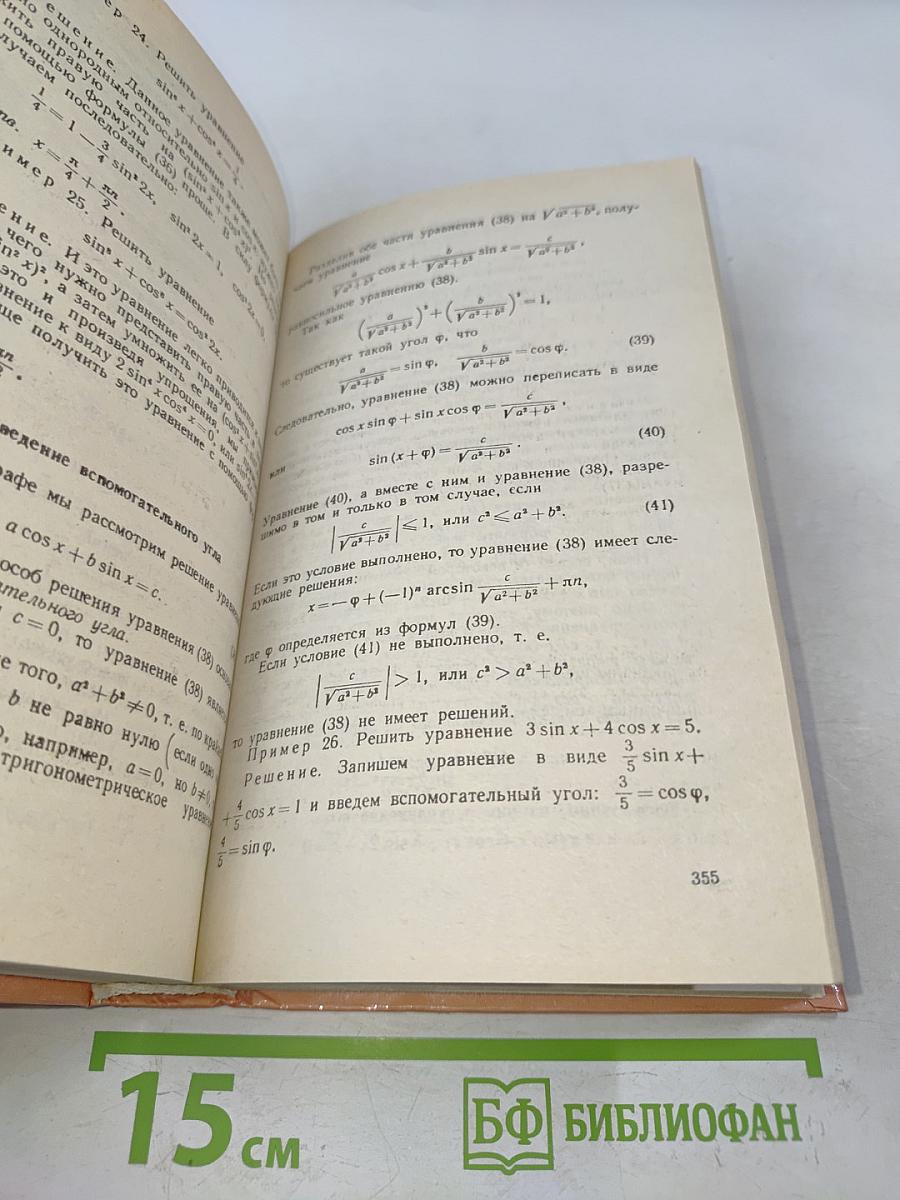 ер 24. Решить уравнение
sin⁶ x + cos⁶ x = 1/4.
ешение. Данное уравнение также
однородным относительно sin x и
правую часть на
помощью формулы (36) проще. В силу
получаем последовательно:
1/4 = 1 − 3/4 sin² 2x, sin² 2x = 1,
x = π/4 + πn/2.
имер 25. Решить уравнение
sin⁶ x + cos⁶ x = cos² 2x.
ение. И это уравнение легко
чего нужно представить правую часть
sin² x)², а затем умножить ее на
это и произведя упрощения, мы
уравнение к виду 2 sin⁴ x cos⁴ x = 0, или
получить это уравнение с помощью
ведение вспомогательного угла
рафе мы рассмотрим решение
a cos x + b sin x = c.
особ решения уравнения (38)
ательного угла.
c = 0, то уравнение (38)
е того, a² + b² ≠ 0, т. е. по
b не равно нулю (если
например, a = 0, но b ≠ 0,
тригонометрическое
Разделив обе части уравнения (38) на √a² + b², полу-
чаем уравнение
a/√a² + b² cos x + b/√a² + b² sin x = c/√a² + b²,
равносильное уравнению (38).
Так как
(a/√a² + b²)² + (b/√a² + b²)² = 1,
то существует такой угол φ, что
a/√a² + b² = sin φ, b/√a² + b² = cos φ. (39)
Следовательно, уравнение (38) можно переписать в виде
cos x sin φ + sin x cos φ = c/√a² + b²,
или
sin (x + φ) = c/√a² + b². (40)
Уравнение (40), а вместе с ним и уравнение (38), разре-
шимо в том и только в том случае, если
|c/√a² + b²| ⩽ 1, или c² ⩽ a² + b². (41)
Если это условие выполнено, то уравнение (38) имеет сле-
дующие решения:
x = — φ + (—1)ⁿ arcsin c/√a² + b² + πn,
где φ определяется из формул (39).
Если условие (41) не выполнено, т. е.
|c/√a² + b²| > 1, или c² > a² + b²,
то уравнение (38) не имеет решений.
Пример 26. Решить уравнение 3 sin x + 4 cos x = 5.
Решение. Запишем уравнение в виде 3/5 sin x +
+ 4/5 cos x = 1 и введем вспомогательный угол: 3/5 = cos φ,
4/5 = sin φ.
355
15 см
БФ БИБЛИОФАН